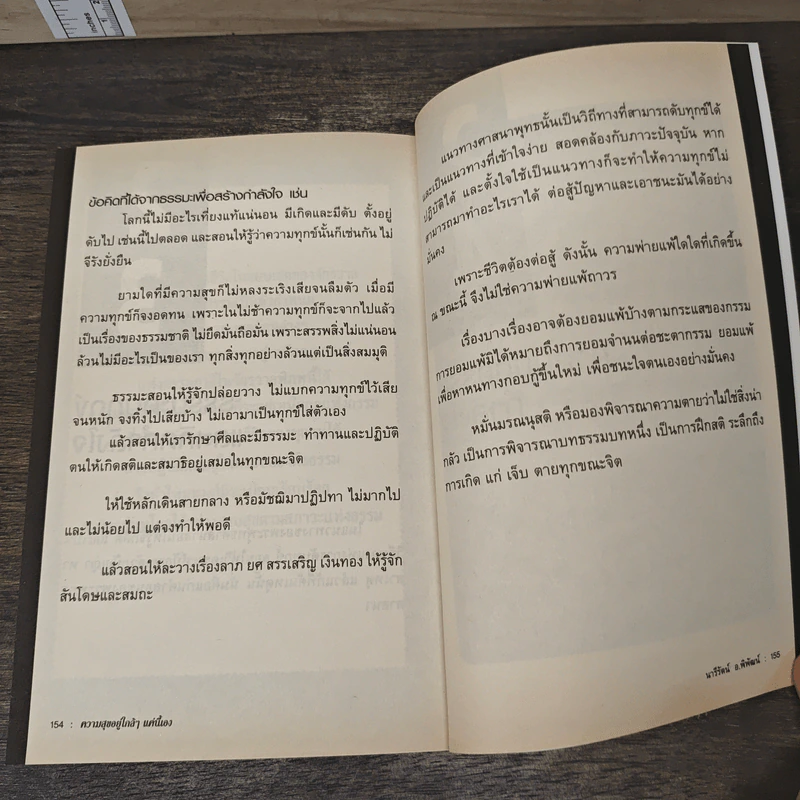 inches
ข้อคิดที่ได้จากธรรมะเพื่อสร้างกำลังใจ เช่น
โลกนี้ไม่มีอะไรเที่ยงแท้แน่นอน มีเกิดและมีดับ ตั้งอยู่
ดับไป เช่นนี้ไปตลอด และสอนให้รู้ว่าความทุกข์นั้นก็เช่นกัน ไม่
จีรังยั่งยืน
ยามใดที่มีความสุขก็ไม่หลงระเริงเสียจนลืมตัว เมื่อมี
ความทุกข์ก็จงอดทน เพราะในไม่ช้าความทุกข์ก็จะจากไปแล้ว
เป็นเรื่องของธรรมชาติ ไม่ยึดมั่นถือมั่น เพราะสรรพสิ่งไม่แน่นอน
ล้วนไม่มีอะไรเป็นของเรา ทุกสิ่งทุกอย่างล้วนแต่เป็นสิ่งสมมุติ
ธรรมะสอนให้รู้จักปล่อยวาง ไม่แบกความทุกข์ไว้เสีย
จนหนัก จงทิ้งไปเสียบ้าง ไม่เอามาเป็นทุกข์ใส่ตัวเอง
แล้วสอนให้เรารักษาศีลและมีธรรมะ ทำทานและปฏิบัติ
ตนให้เกิดสติและสมาธิอยู่เสมอในทุกขณะจิต
ให้ใช้หลักเดินสายกลาง หรือมัชฌิมาปฏิปทา ไม่มากไป
และไม่น้อยไป แต่จงทำให้พอดี
แล้วสอนให้ละวางเรื่องลาภ ยศ สรรเสริญ เงินทอง ให้รู้จัก
สันโดษและสมถะ
154 : ความสุขอยู่ใกล้ๆ แค่นี้เอง
แนวทางศาสนาพุทธนั้นเป็นวิถีทางที่สามารถดับทุกข์ได้
และเป็นแนวทางที่เข้าใจง่าย สอดคล้องกับภาวะปัจจุบัน หาก
ปฏิบัติได้ และตั้งใจใช้เป็นแนวทางก็จะทำให้ความทุกข์ไม่
สามารถมาทำอะไรเราได้ ต่อสู้ปัญหาและเอาชนะมันได้อย่าง
มั่นคง
เพราะชีวิตต้องต่อสู้ ดังนั้น ความพ่ายแพ้ใดใดที่เกิดขึ้น
ณ ขณะนี้ จึงไม่ใช่ความพ่ายแพ้ถาวร
เรื่องบางเรื่องอาจต้องยอมแพ้บ้างตามกระแสของกรรม
การยอมแพ้มิได้หมายถึงการยอมจำนนต่อชะตากรรม ยอมแพ้
เพื่อหาหนทางกอบกู้ขึ้นใหม่ เพื่อชนะใจตนเองอย่างมั่นคง
หมั่นมรณนุสติ หรือมองพิจารณาความตายว่าไม่ใช่สิ่งน่า
กลัว เป็นการพิจารณาบทธรรมบทหนึ่ง เป็นการฝึกสติ ระลึกถึง
การเกิด แก่ เจ็บ ตายทุกขณะจิต
นารีรัตน์ อ.พิพัฒน์ : 155